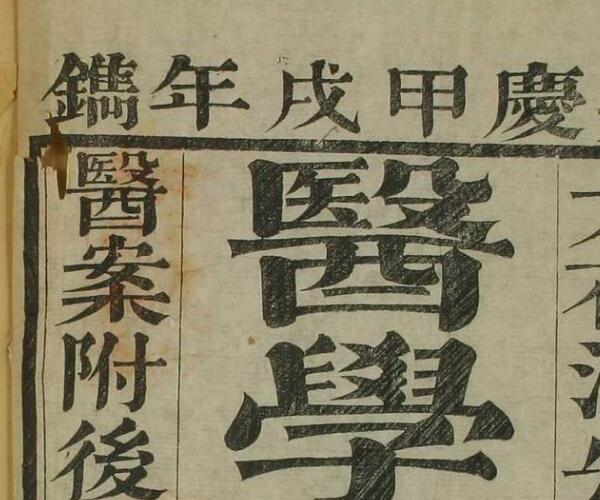 慶甲戌年鐫
醫學
醫案附後